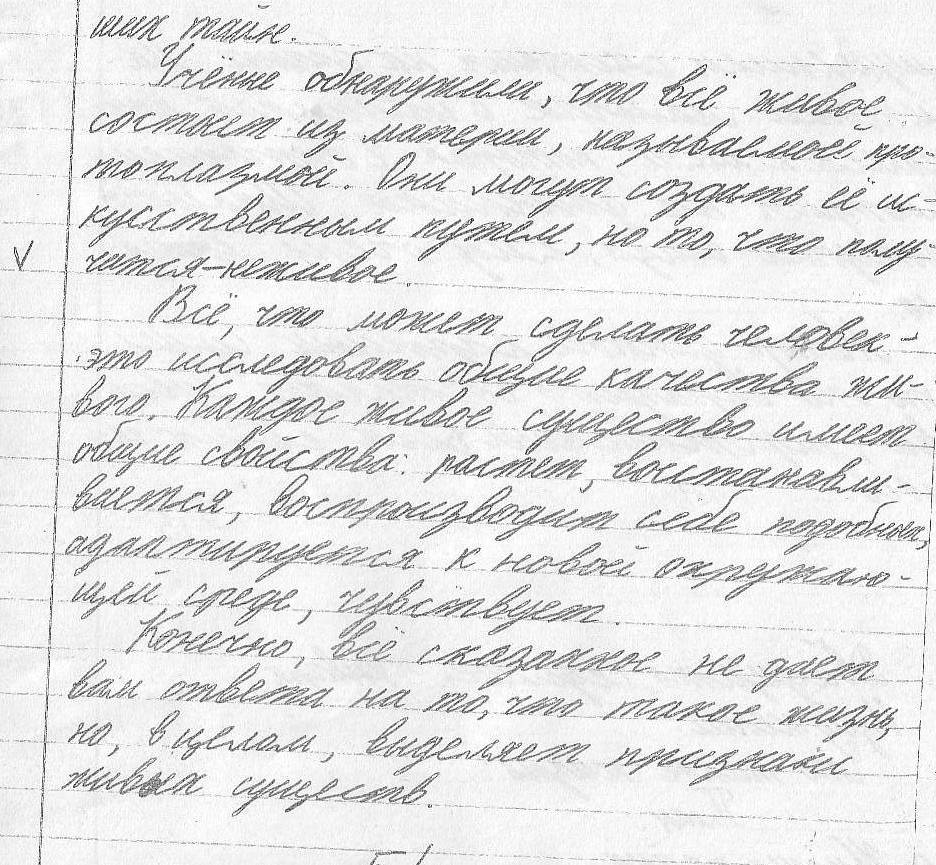 ших тайн.
Учёные обнаружили, что всё живое
состоит из материи, называемой про-
топлазмой. Они могут создать её ис-
кусственным путем, но то, что полу-
чится-неживое.
Всё, что может сделать человек-
это исследовать общие качества жи-
вого. Каждое живое существо имеет
общие свойства: растет, восстанавли-
вается, воспроизводит себе подобных,
адаптируется к новой окружаю-
щей среде, чувствует.
Конечно, всё сказанное не дает
вам ответа на то, что такое жизнь,
но, в целом, выделяет признаки
живых существ.